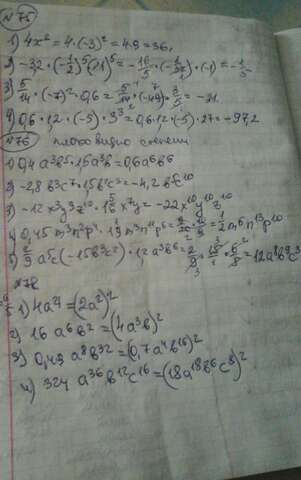 №75
1) 4x² = 4·(-3)² = 4·9 = 36,
2) -3,2·(-1/2)⁵·(-1)⁵ = -16/5·(-1/32)·(-1) = -1/
3) 5/14·(-7)²·0,6 = 5/14·(-49)·3/5 = -21.
4) 0,6·1,2·(-5)·9³ = 0,6·1,2·(-5)·27 = -97,2
№76 плохо видно степени
1) 0,4a³b⁵·1,5a³b = 0,6a⁶b⁶
2) -2,8b³c⁷·1,5b²c³ = -4,2b⁵c¹⁰
3) -12x³y⁹z¹⁰·1 5/6x⁷y = -22x¹⁰y¹⁰z¹⁰
4) 0,45m³n²p⁴·1 1/9m³n¹¹p⁶ = 9/20·10/9 = 1/2m⁶n¹³p¹⁰
5) 2/9a⁵c(-15b³c²)·1,2a³b⁶ = 2/9·15/1·6/5 = 12a⁸b⁹c³
№78
1) 4a⁴ = (2a²)²
2) 16a⁶b² = (4a³b)²
3) 0,49a⁸b³² = (0,7a⁴b¹⁶)²
4) 324a³⁶b¹²c¹⁶ = (18a¹⁸b⁶c⁸)²